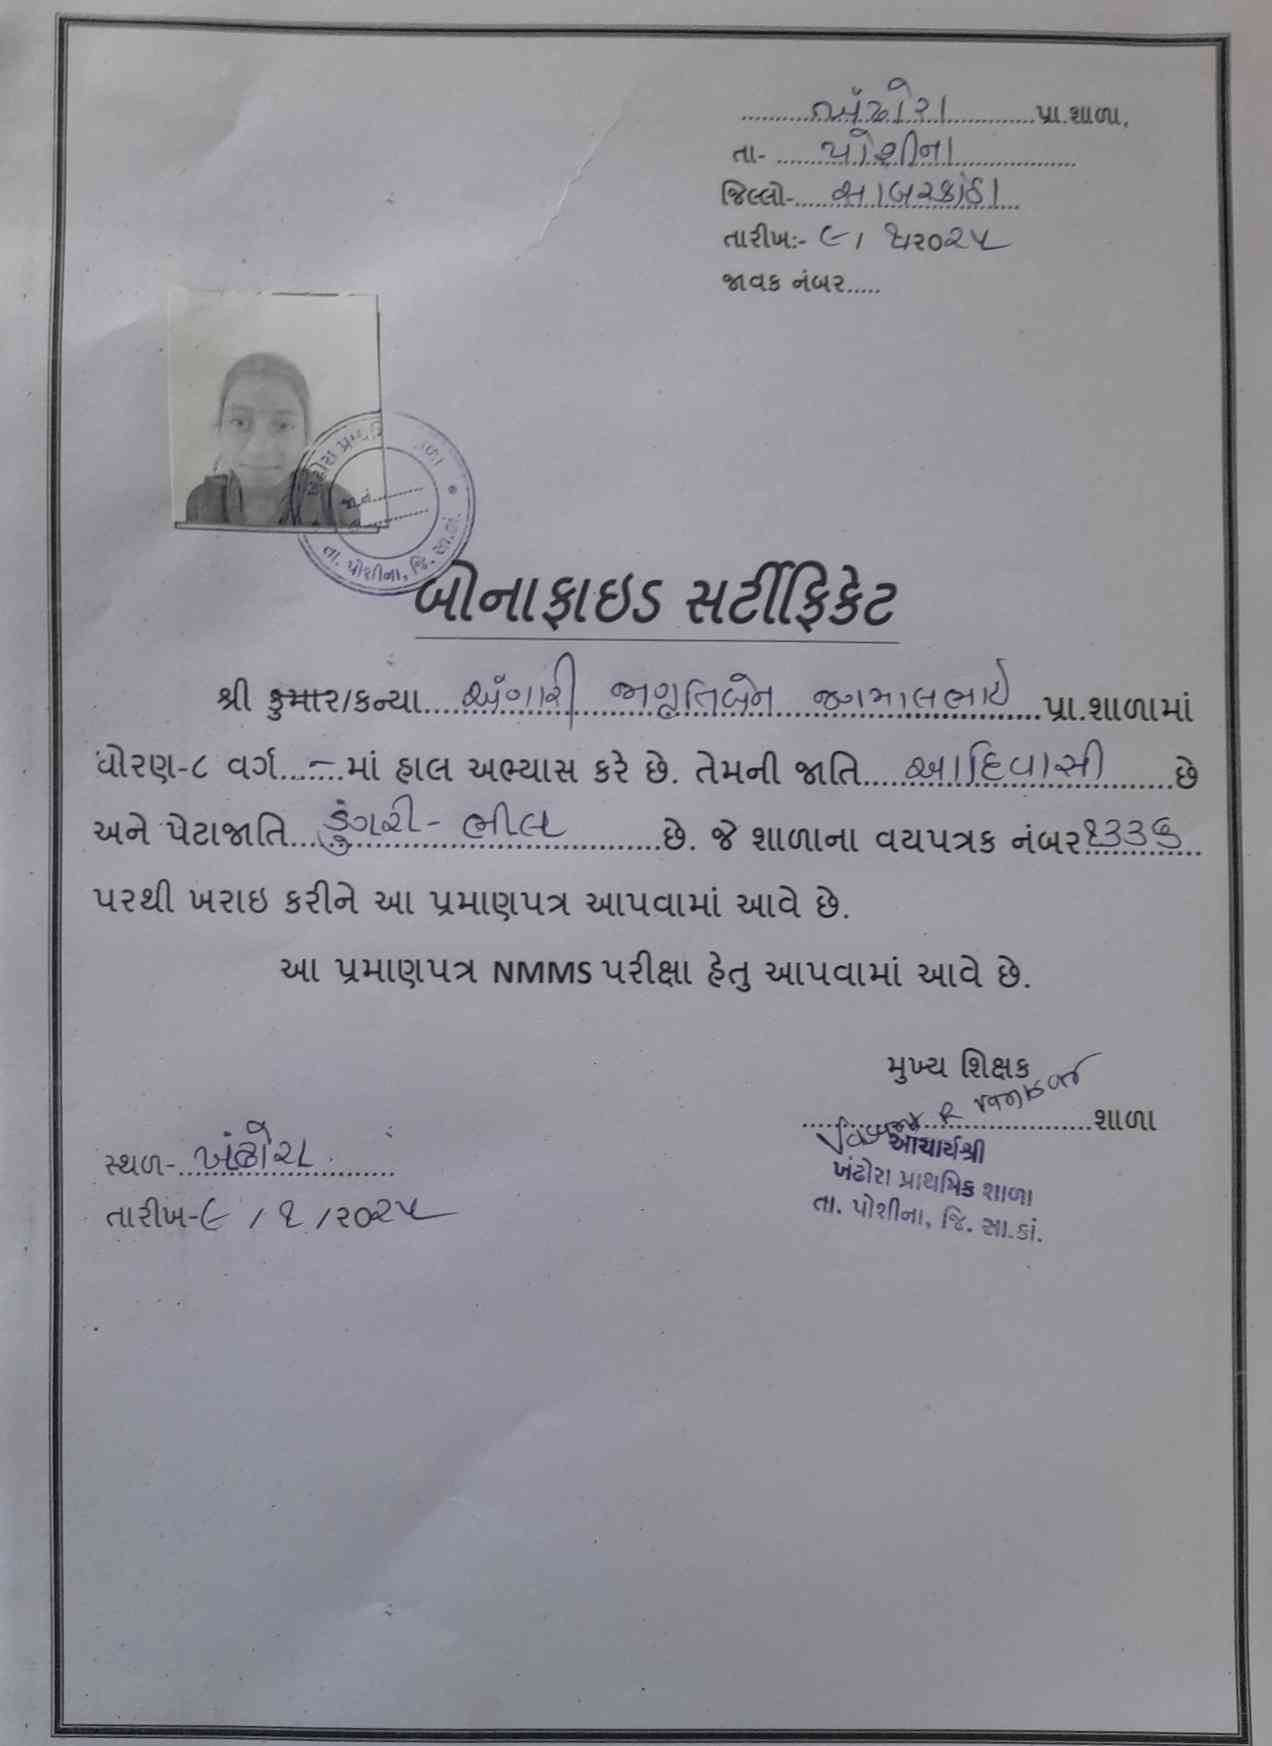 ખંઢોરા પ્રા.શાળા,
તા- પોશીના
જિલ્લો- સાબરકાંઠા
તારીખ:- ૯/ ૧/૨૦૨૫
જાવક નંબર.....
તા. પોશીના, જિ. સા.કાં.
બોનાફાઇડ સર્ટીફિકેટ
શ્રી કુમાર/કન્યા અંગારી જાગૃતિબેન જગમાલભાઇ પ્રા.શાળામાં
ધોરણ-૮ વર્ગ...–...માં હાલ અભ્યાસ કરે છે. તેમની જાતિ આદિવાસી છે
અને પેટાજાતિ ડુંગરી - ભીલ છે. જે શાળાના વયપત્રક નંબર ૧૩૩૬
પરથી ખરાઇ કરીને આ પ્રમાણપત્ર આપવામાં આવે છે.
આ પ્રમાણપત્ર NMMS પરીક્ષા હેતુ આપવામાં આવે છે.
મુખ્ય શિક્ષક
શાળા
આચાર્યશ્રી
ખંઢોરા પ્રાથમિક શાળા
તા. પોશીના, જિ. સા.કાં.
સ્થળ- ખંઢોરા
તારીખ-૯ / ૧ /૨૦૨૫